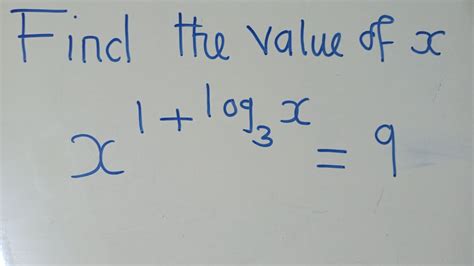 Find the value of x
x^{1 + log_3 x} = 9